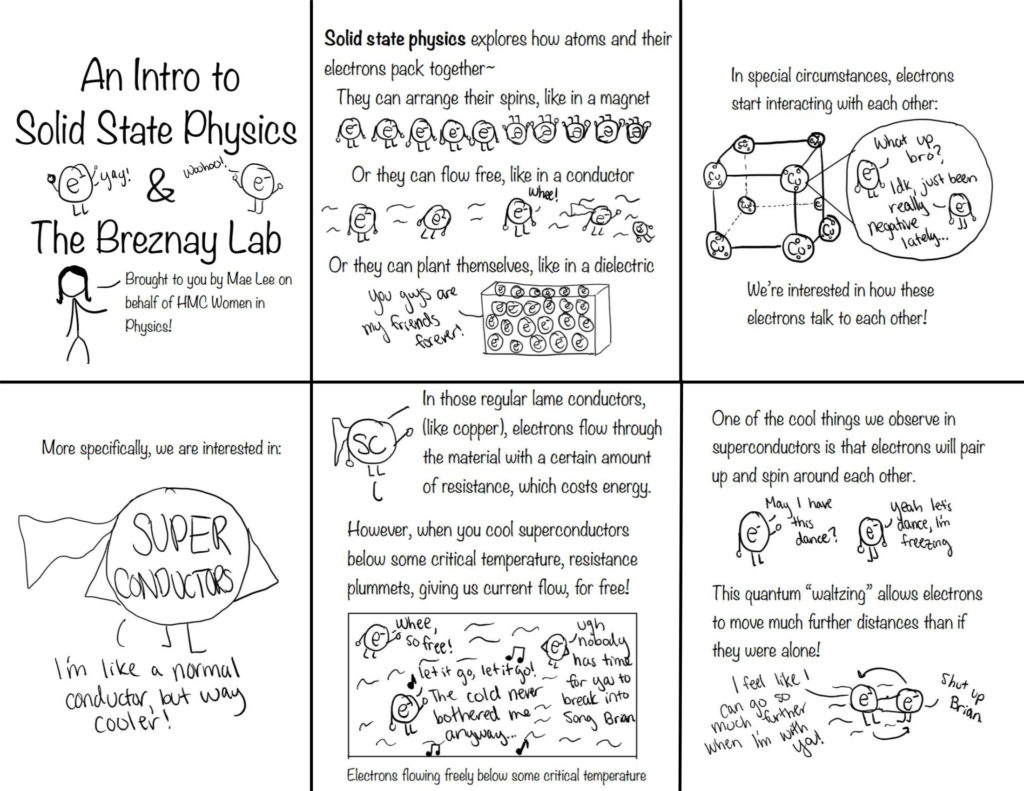 An Intro to
Solid State Physics
e⁻
yay!
&
Woohoo!
e⁻
The Breznay Lab
Brought to you by Mae Lee on
behalf of HMC Women in
Physics!
Solid state physics explores how atoms and their
electrons pack together~
They can arrange their spins, like in a magnet
Or they can flow free, like in a conductor
Whee!
Or they can plant themselves, like in a dielectric
you guys are
my friends
forever!
In special circumstances, electrons
start interacting with each other:
What up
bro?
Idk, just been
really
negative
lately...
We're interested in how these
electrons talk to each other!
More specifically, we are interested in:
SUPER
CONDUCTORS
I'm like a normal
conductor, but way
cooler!
SC
In those regular lame conductors,
(like copper), electrons flow through
the material with a certain amount
of resistance, which costs energy.
However, when you cool superconductors
below some critical temperature, resistance
plummets, giving us current flow, for free!
Whee,
so free!
let it go, let it go!
The cold never
bothered me
anyway...
ugh
nobody
has time
for you to
break into
song Brian
Electrons flowing freely below some critical temperature
One of the cool things we observe in
superconductors is that electrons will pair
up and spin around each other.
May I have
this
dance?
Yeah let's
dance, I'm
freezing
This quantum "waltzing" allows electrons
to move much further distances than if
they were alone!
I feel like I
can go so
much further
when I'm with
ya!
Shut up
Brian